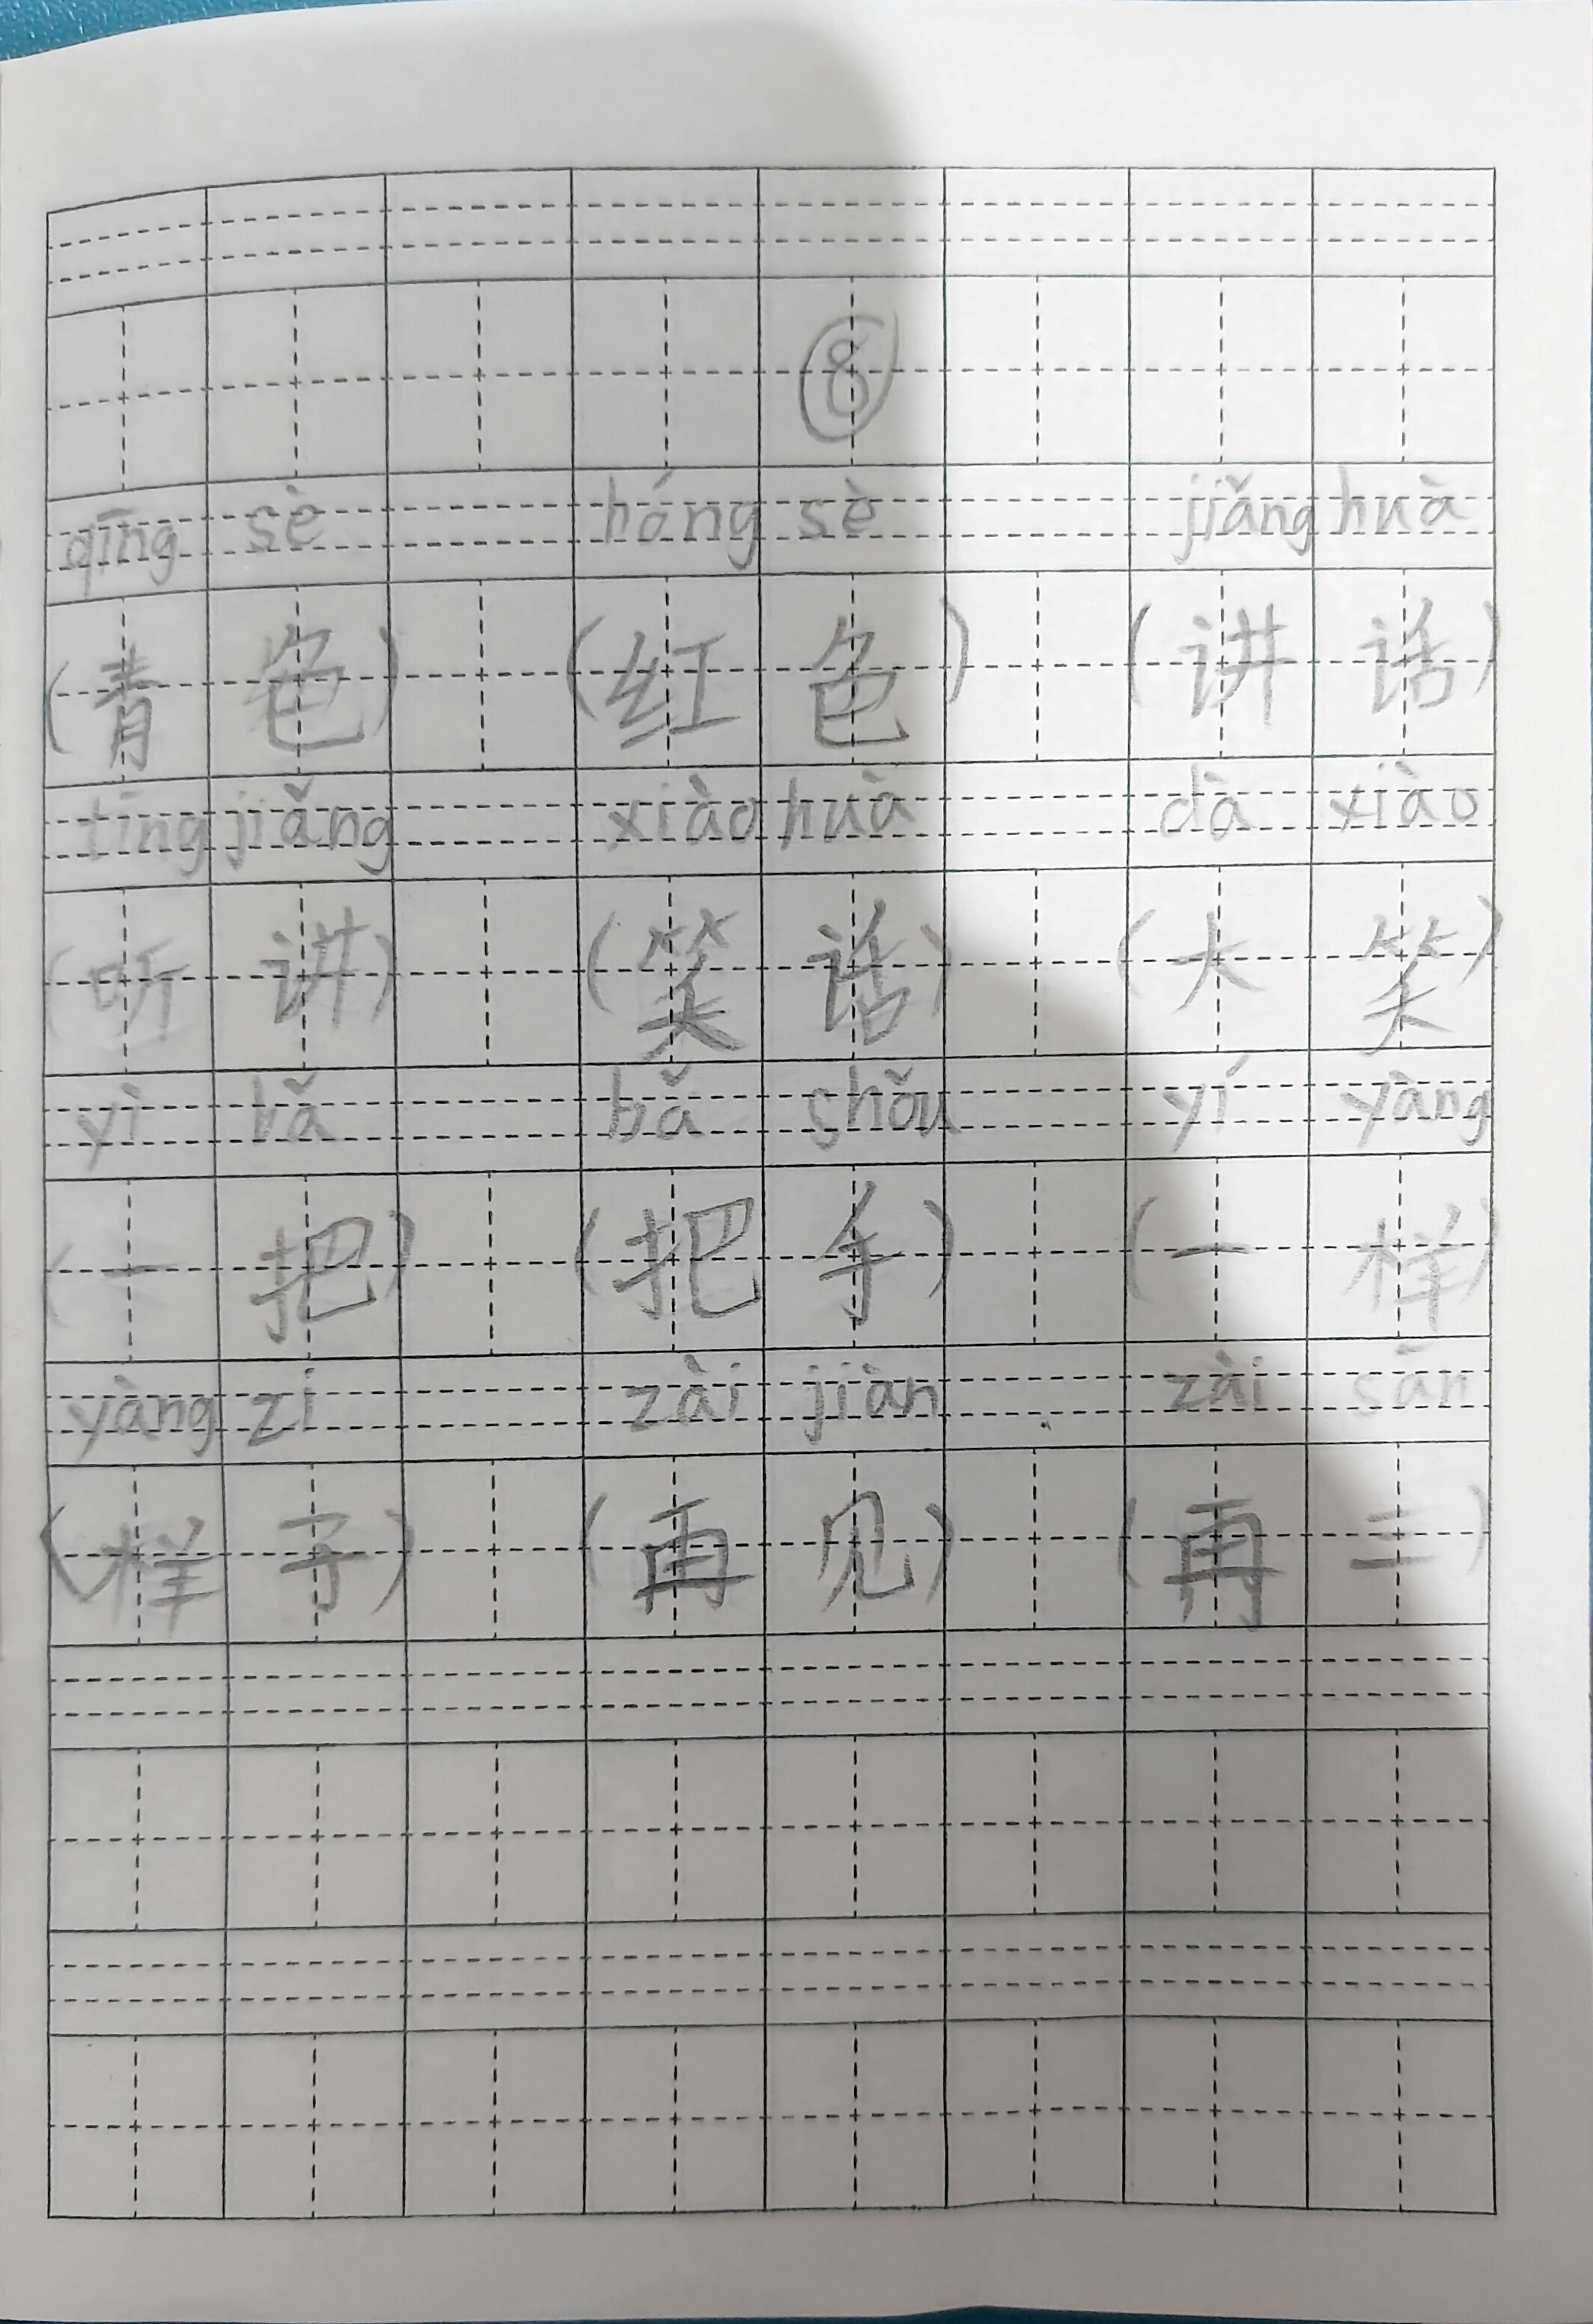 ⑧
qīng sè hóng sè jiǎng huà
(青 色) (红 色) (讲 话)
tīng jiǎng xiào huà dà xiào
(听 讲) (笑 话) (大 笑)
yì bǎ bǎ shǒu yí yàng
(一 把) (把 手) (一 样)
yàng zi zài jiàn zài sān
(样 子) (再 见) (再 三)